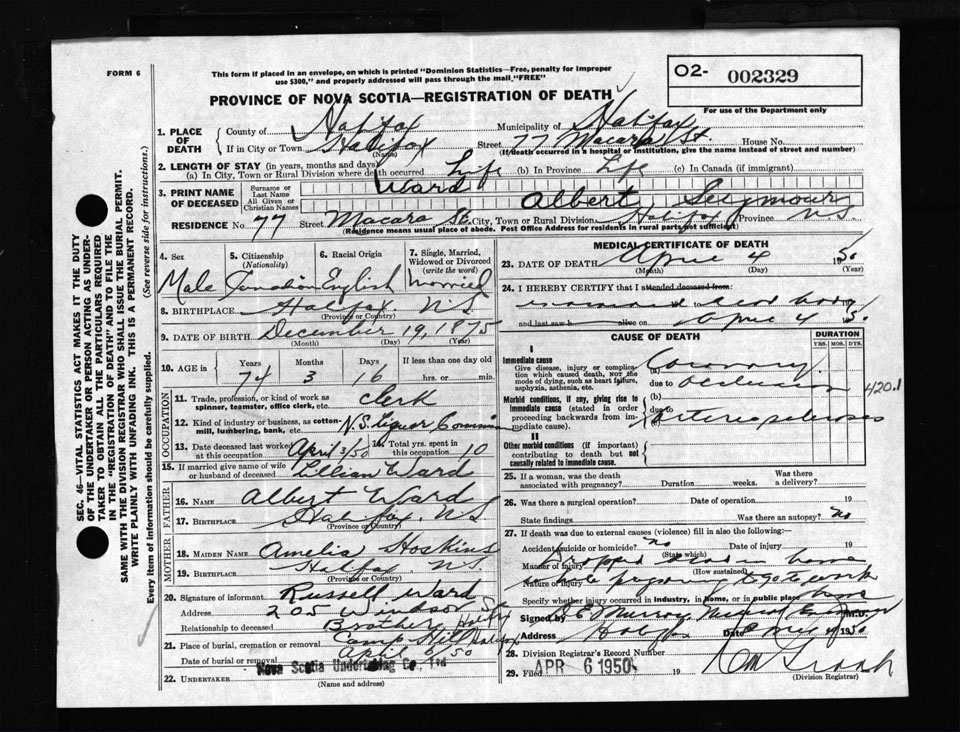 FORM 6
This form if placed in an envelope, on which is printed "Dominion Statistics—Free, penalty for improper
use $300," and properly addressed will pass through the mail, "FREE"
O2- 002329
For use of the Department only
PROVINCE OF NOVA SCOTIA—REGISTRATION OF DEATH
1. PLACE OF DEATH
County of Halifax Municipality of Halifax
If in City or Town Halifax Street 77 Macara St. House No.
(Name) (If death occurred in a hospital or institution, give the name instead of street and number)
2. LENGTH OF STAY (in years, months and days)
(a) In City, Town or Rural Division where death occurred Life (b) In Province Life (c) In Canada (if immigrant)
3. PRINT NAME OF DECEASED
Surname or Last Name Ward
All Given or Christian Names Albert Seymour
RESIDENCE No. 77 Street Macara St. City, Town or Rural Division Halifax Province N.S.
(Residence means usual place of abode. Post Office Address for residents in rural parts not sufficient)
SEC. 46—VITAL STATISTICS ACT MAKES IT THE DUTY
OF THE UNDERTAKER OR PERSON ACTING AS UNDER-
TAKER TO OBTAIN ALL THE PARTICULARS REQUIRED
IN THE "REGISTRATION OF DEATH" AND TO FILE THE
SAME WITH THE DIVISION REGISTRAR WHO SHALL ISSUE THE BURIAL PERMIT.
WRITE PLAINLY WITH UNFADING INK. THIS IS A PERMANENT RECORD.
Every item of information should be carefully supplied. (See reverse side for instructions.)
4. Sex 5. Citizenship (Nationality) 6. Racial Origin 7. Single, Married, Widowed or Divorced (write the word)
Male Canadian English Married
8. BIRTHPLACE Halifax N.S.
(Province or Country)
9. DATE OF BIRTH December 19, 1875
(Month) (Day) (Year)
10. AGE in Years Months Days If less than one day old
74 3 16 hrs. or min.
OCCUPATION
11. Trade, profession, or kind of work as
spinner, teamster, office clerk, etc. Clerk
12. Kind of industry or business, as cotton-
mill, lumbering, bank, etc. N.S. Liquor Commission
13. Date deceased last worked at this occupation April 3/50 14. Total yrs. spent in this occupation 10
15. If married give name of wife
or husband of deceased Lillian Ward
FATHER
16. NAME Albert Ward
17. BIRTHPLACE Halifax. N.S.
(Province or Country)
MOTHER
18. MAIDEN NAME Amelia Hoskins
19. BIRTHPLACE Halifax. N.S.
(Province or Country)
20. Signature of informant Russell Ward
Address 205 Windsor St. Halifax
Relationship to deceased Brother
21. Place of burial, cremation or removal Camp Hill Halifax
Date of burial or removal April 6/50
22. UNDERTAKER Nova Scotia Undertaking Co., Ltd
(Name and address)
MEDICAL CERTIFICATE OF DEATH
23. DATE OF DEATH April 4 1950
(Month) (Day) (Year)
24. I HEREBY CERTIFY that I attended deceased from:
examined dead body
and last saw h alive on April 4 1950
CAUSE OF DEATH
DURATION
YRS. MOS. DYS.
I
Immediate cause
Give disease, injury or complication
which caused death, NOT the
mode of dying, such as heart failure,
asphyxia, asthenia, etc.
(a) Coronary
due to Occlusion 420.1
Morbid conditions, if any, giving rise to
immediate cause (stated in order
proceeding backwards from immediate cause)
(b)
due to Arteriosclerosis
(c)
II
Other morbid conditions (if important)
contributing to death but not
causally related to immediate cause.
25. If a woman, was the death
associated with pregnancy? Duration weeks. Was there a delivery?
26. Was there a surgical operation? Date of operation 19
State findings Was there an autopsy? No
27. If death was due to external causes (violence) fill in also the following:—
Accident, suicide or homicide? No Date of injury 19
(State which)
Manner of injury Dropped dead in home
(How sustained)
Nature of injury while preparing to go to work
Specify whether injury occurred in industry, in Home, or in public place Home
Signed by Murray Medical Examiner M.D.
Address Halifax Date April 4 1950
28. Division Registrar's Record Number
29. Filed APR 6 1950 19
(Division Registrar)